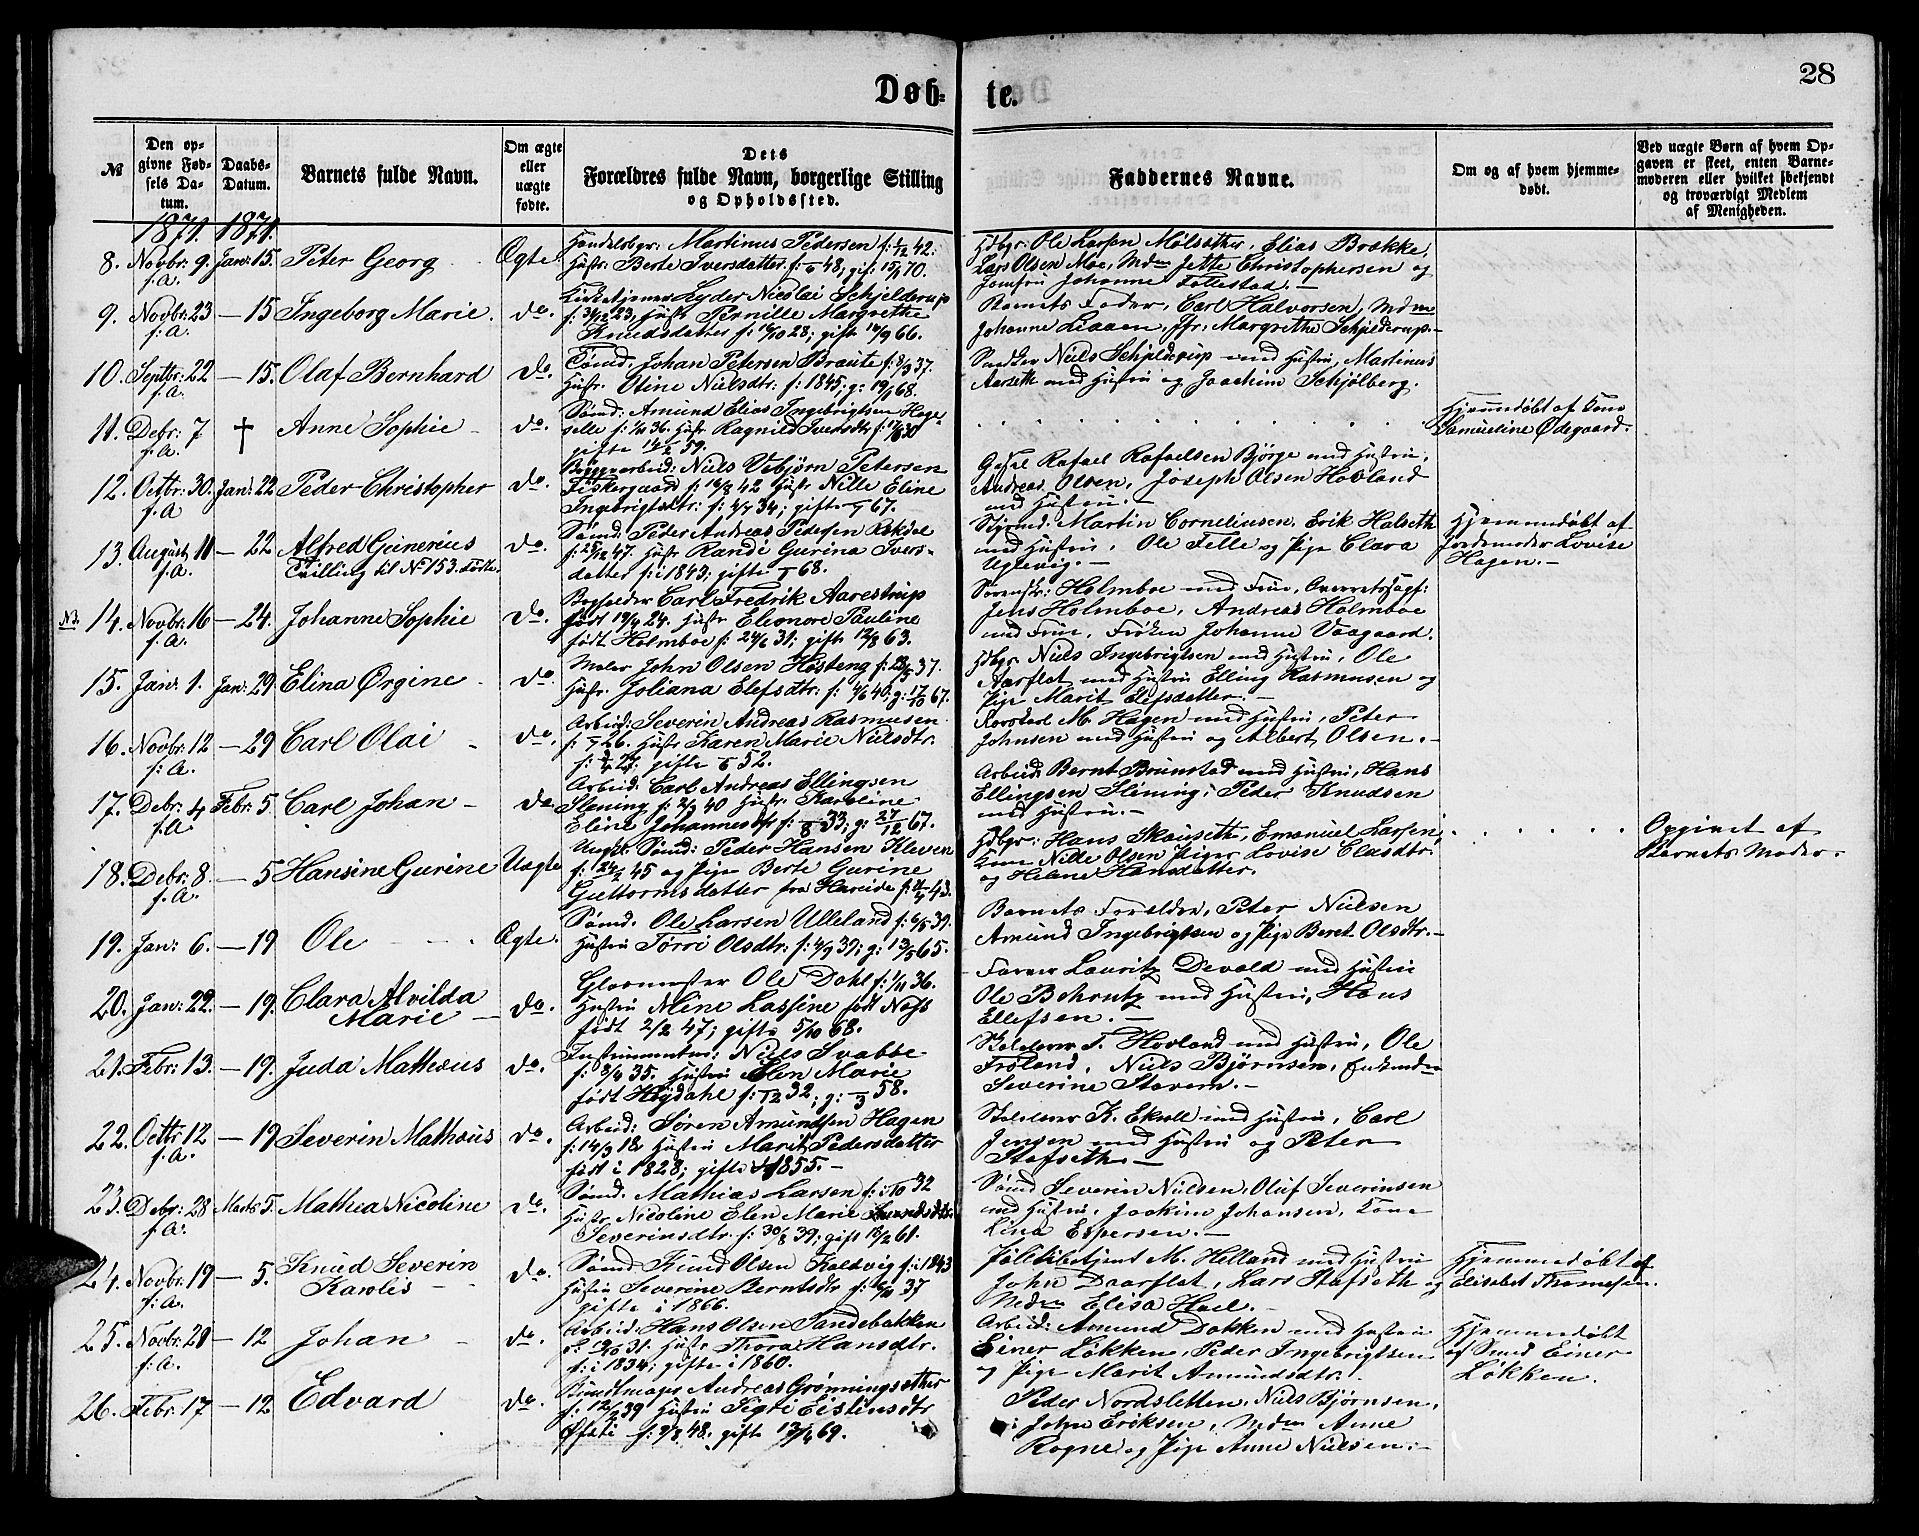 Døb-
te.
28
№
Den op-
givne Fød-
sels Da-
tum.
Daabs-
Datum.
Barnets fulde Navn.
Om ægte
eller
uægte
fødte.
Dets
Forældres fulde Navn, borgerlige Stilling
og Opholdssted.
Faddernes Navne.
Om og af hvem hjemme-
døbt.
Ved uægte Børn af hvem Op-
gaven er skeet, enten Barne-
moderen eller hvilket ibekjendt
og troværdigt Medlem
af Menigheden.
1871. 1871.
8. Novbr: 9. Jan: 15. Peter Georg Ægte
f.A.
Handelsbgr: Martinus Pedersen
Hustr: Berte Iversdatter
Hdbgr: Ole Larsen Molsæther, Elias Brække,
Lars Olsen Moe, Mdm Jette Christophersen og
Jomfru Johanne Follestad.
9. Novbr: 23 — 15 Ingeborg Marie. do.
f.A.
Kirketjener Lyder Nicolai Schjelderup
Hustr Pernille Margrethe
Knudsdatter f: 16/10 28; gift 14/9 66.
Barnets Fader, Carl Halvorsen, Mdm
Johanne Liaaen, Jfr. Margrethe Schjelderup.
10. Septbr: 22 — 15. Olaf Bernhard do.
f.A.
Tømd: Johan Petersen Braute f: 8/9 37.
Hustr. Oline Nielsdtr: f: 1845; g: 19/1 68.
Snedker Niels Schjelderup med Hustru, Martinus
Aarseth med Hustru og Joachim Schjølberg.
11. Debr: 7 † Anne Sophie do.
f.A.
Sømd: Amund Elias Ingebrigtsen Hage-
selle Hustr Ragnild Iversdtr
gifte
Hjemmedøbt af Kone
Samueline Ødegaard.
12. Octbr: 30. Jan: 22 Peder Christopher do.
f.A
Bryggarbeid: Niels Vebjørn Petersen
Fiskergaard f: 16/8 42 Hustr Nille Eline
Ingebrigtsdtr: f: 4/7 34; gifte 67.
Rafael Rafaelsen Bjørge med Hustru,
Andreas Olsen, Joseph Olsen Hovland
med Hustru.
13. August 11 — 22 Alfred Geinerius do.
f.A. Tvilling til No 153. Fødte
Sømd: Peder Andreas Pedersen Rekdal
Hustr Randi Gurina Ivers-
datter f: i 1843; gifte 68.
Styrmd: Martin Corneliusen, Erik Halseth
med Hustru, Ole Felle og Pige Clara
Uglevig.
Hjemmedøbt af
Jordemoder Lovise
Hagen.
14. Novbr: 16 — 24. Johanne Sophie do.
f.A.
Bogholder Carl Fredrik Aarestrup
født 19/4 24. Hustr Eleonore Pauline
født Holmboe f: 24/6 31; gift 12/8 63.
Sorenskr: Holmboe med Frue, Overretssagf:
Jens Holmboe, Andreas Holmboe
med Frue, Frøken Johanne Vaagaard.
15. Jan: 1. Jan: 29 Elina Ørgine do.
Maler John Olsen Høsteng
Hustr. Joliana Elefsdtr: f: 4/6 40; g: 17/10 67.
Hdbgr. Niels Ingebrigtsen med Hustru, Ole
Aarflot med Hustru Elling Rasmusen og
Pige Marit Elefsdatter.
16. Novbr: 12 — 29 Carl Olai do.
f.A.
Arbeid: Severin Andreas Rasmusen
26. Hustr Karen Marie Nielsdtr.
gifte 52.
M. Hagen med Hustru, Peter
Johnsen med Hustru og Albert Olsen.
17. Debr: 4 Febr: 5. Carl Johan do
f.A
Arbeid: Carl Andreas Ellingsen
Slaning f: 2/9 40 Hustr Karoline
Eline Johannesdtr 33; g: 27/12 67.
Arbeid: Bernt Brunstad med Hustru, Hans
Ellingsen Slening; Peder Knudsen
med Hustru.
18. Debr: 8. — 5 Hansine Gurine Uægte
f.A.
Ungk. Sømd: Peder Hansen Kleven
45 og Pige Berte Gurine
Guttormsdatter fra Hareide
Hdbgr: Hans Skouseth, Emanuel Larsen,
Kone Nille Olsen Piger Lovise Clasdtr:
og Helene Hansdatter.
Opgivet af
Barnets Moder.
19. Jan: 6. — 19 Ole Ægte.
Sømd. Ole Larsen Ulleland f: 6/5 39.
Hustru Torri Olsdtr: f: 4/9 39; g: 13/5 65.
Barnets Forældre, Peter Nielsen
Amund Ingebrigtsen og Pige Beret Olsdtr.
20. Jan: 22. — 19. Clara Alvilda do.
Marie
Ole Dahl f: 1/11 36.
Hustru Aline Lassine født Næss
født 2/2 47; gifte 5/10 68.
Farver Lauritz Devold med Hustru
Ole Behrntz med Hustru, Hans
Ellefsen.
21. Febr: 13. — 19. Juda Mathæus do.
Instrumentm: Niels Svabbe
f: 3/4 35. Hustru Elen Marie
født Høydahl 32; g: 58.
Skolelærer T. Hovland med Hustru, Ole
Frøland, Niels Bjørnsen,
Severine Stavem.
22. Octbr 12 — 19 Severin Mathæus do.
f.A.
Arbeid: Søren Amundsen Hagen
f: 14/3 18 Hustru Marit Pedersdatter
født i 1828; gifte 1855.
Skolelærer K. Ekroll med Hustru, Carl
Jensen med Hustru og Peter
Stafseth.
23. Debr: 28 Marts 5. Mathea Nicoline do.
f.A.
Sømd. Mathias Larsen 32
Hustr Nicoline Elen Marie
Severinsdtr. f: 30/8 39; gift
Sømd Severin Nielsen, Oluf Severinsen
med Hustru, Joakim Johansen, Kone
Lina Espersen.
24. Novbr: 19 — 5. Knud Severin do.
f.A. Karolis
Sømd Knud Olsen Kaldvig f: i 1843
Hustru Severine Berntsdtr 37
gifte i 1866.
Politibetjent M. Helland med Hustru
John Daarflot, Lars Stafseth og
Mdm Elisa Hoel.
Hjemmedøbt af
Elisabet Thomesen.
25. Novbr: 28 — 12 Johan do.
f.A.
Arbeid: Hans Olsen Sandebakken
31. Hustr Thora Hansdtr.
f: i 1834; gifte i 1860.
Arbeid: Amund Dokken med Hustru
Einer Løkken, Peder Ingebrigtsen
og Pige Marit Amundsdtr.
Hjemmedøbt
af Sømd Einer
Løkken.
26. Febr: 17 — 12 Edvard do.
Andreas Grønningsæther
f: 12/2 39 Hustru Sigri Eistinsdtr
f: 9/8 48. gifte 69.
Peder Nordsletten, Niels Bjørnsen,
John Eriksen, Mdm Anne
Rogne og Pige Anne Nielsen.